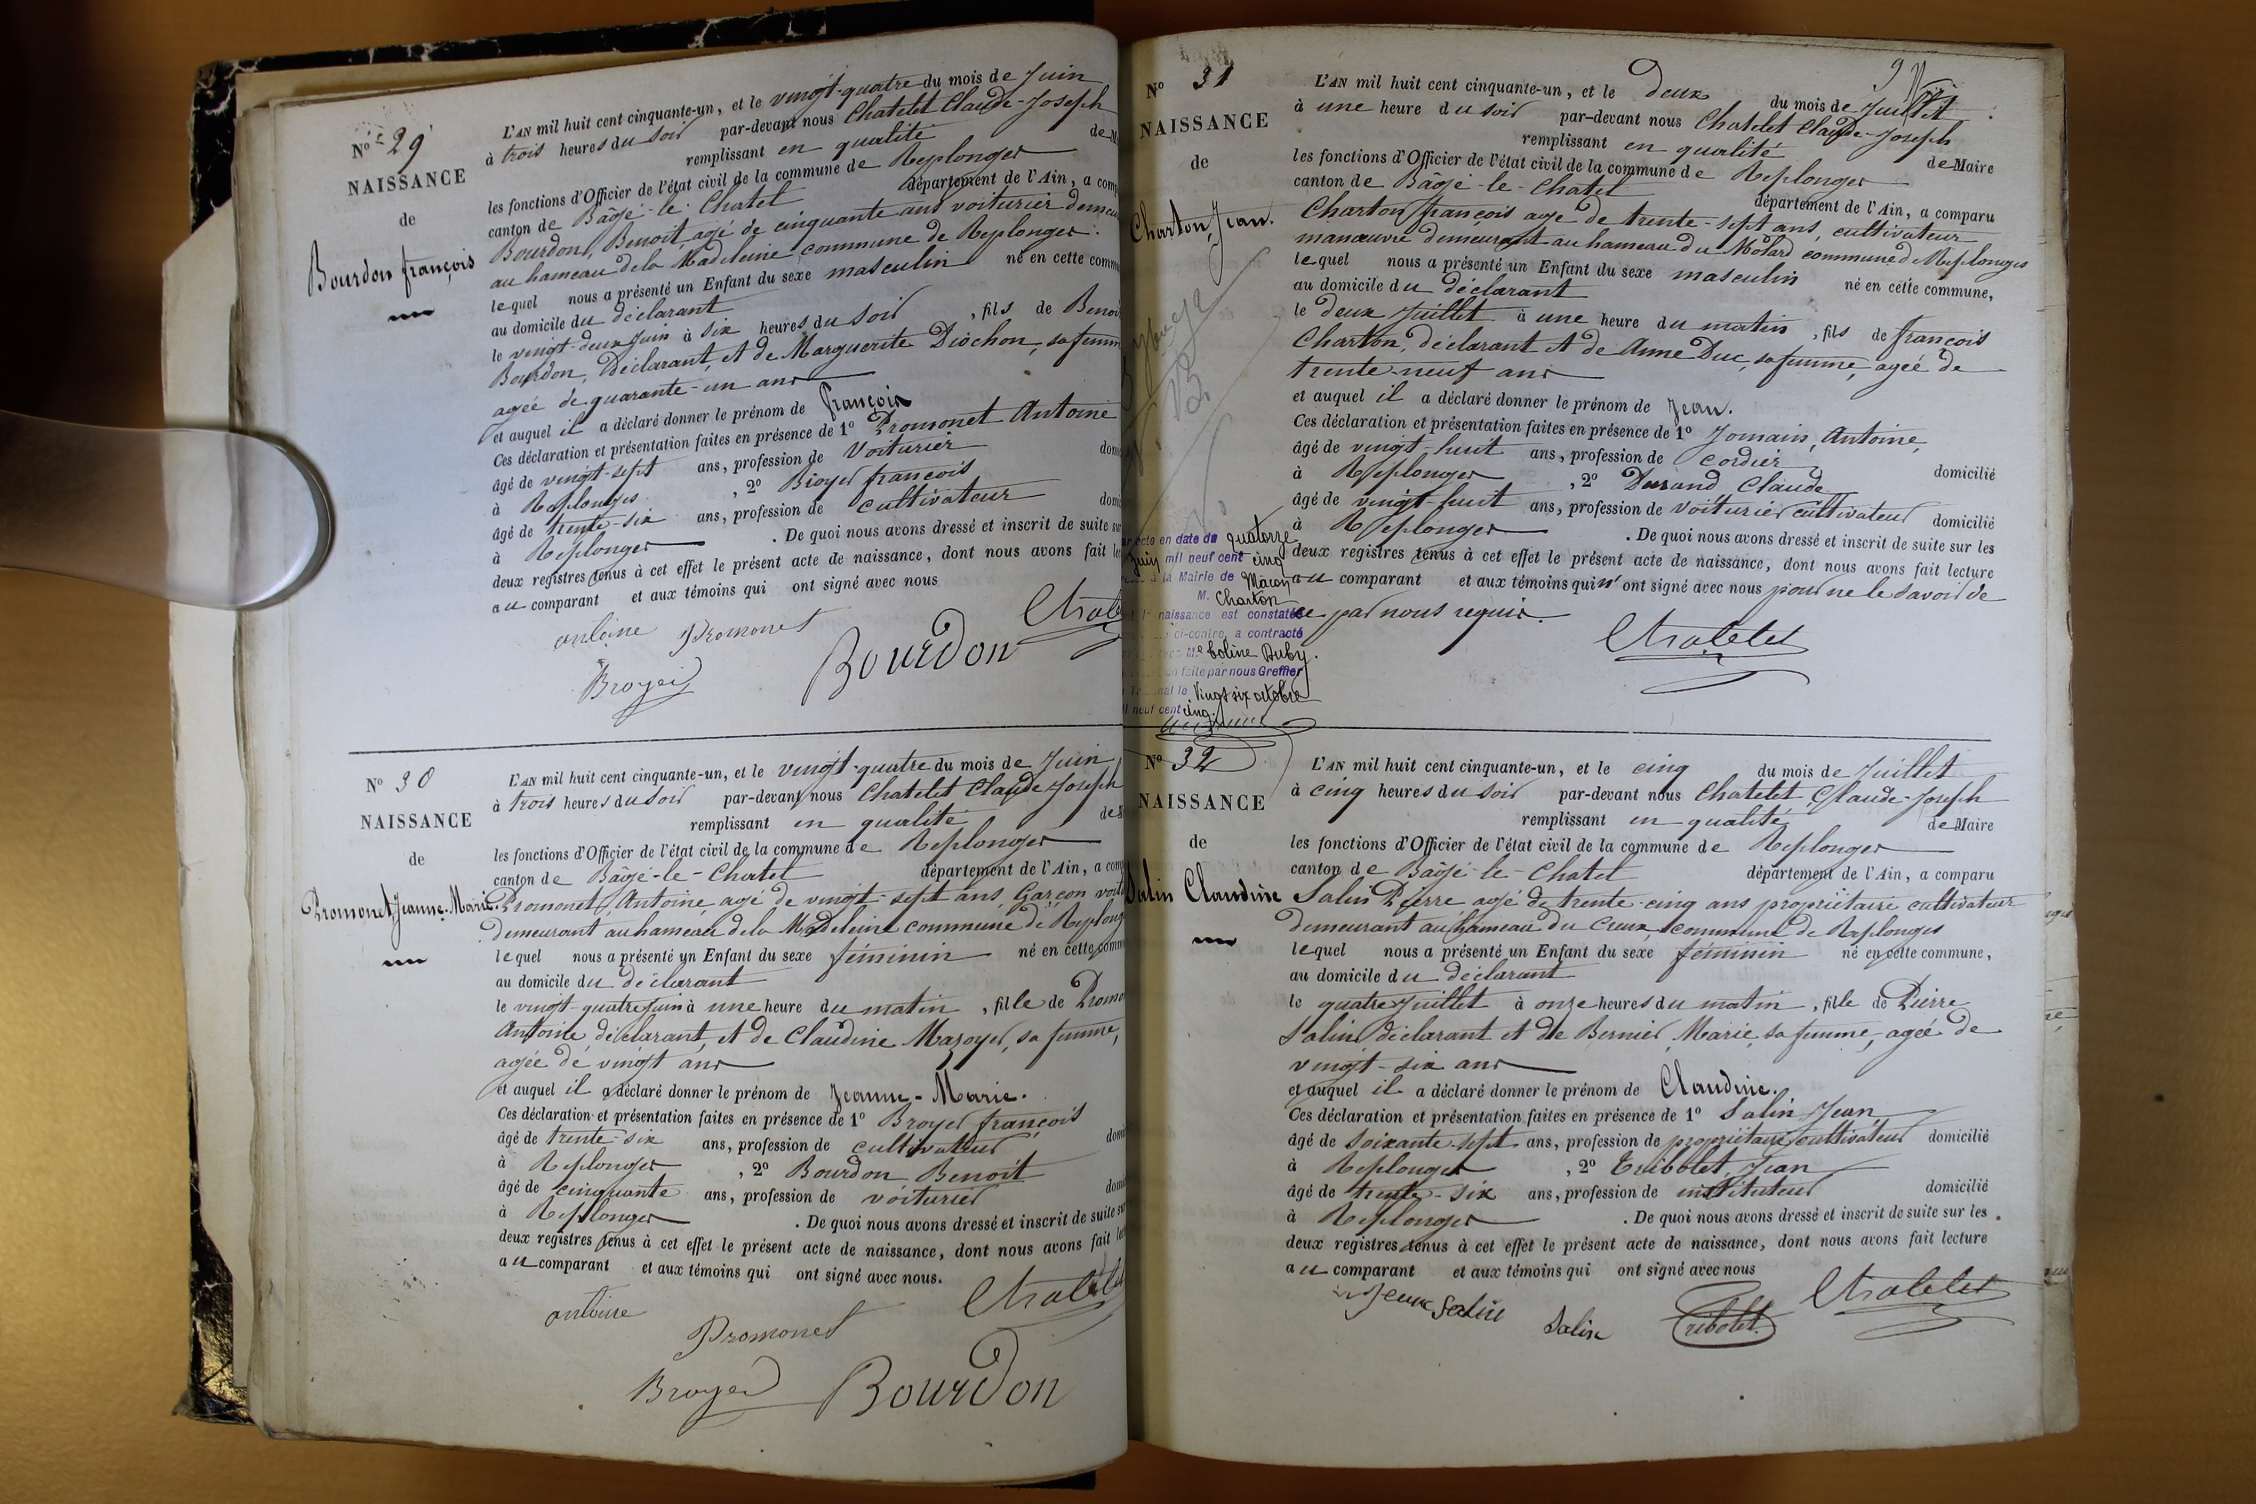 Nº 29
NAISSANCE
de
Bourdon françois
L'AN mil huit cent cinquante-un, et le vingt-quatre du mois de Juin
à trois heures du soir par-devant nous Chatelet Claude-Joseph
remplissant en qualité de
les fonctions d'Officier de l'état civil de la commune de Replonges
canton de Bâgé-le-Chatel département de l'Ain, a
Bourdon, Benoit, agé de cinquante ans voiturier
au hameau de la Madeleine, commune de Replonges.
lequel nous a présenté un Enfant du sexe masculin né en cette
au domicile du déclarant
le vingt-deux Juin à six heures du soir, fils de
Bourdon, déclarant, et de Marguerite Diochon, sa
agée de quarante-un ans
et auquel il a déclaré donner le prénom de françois
Ces déclaration et présentation faites en présence de 1º Promonet Antoine
âgé de vingt-sept ans, profession de voiturier
à Replonges, 2º Broyer françois
âgé de trente-six ans, profession de cultivateur
à Replonges. De quoi nous avons dressé et inscrit de suite
deux registres tenus à cet effet le présent acte de naissance, dont nous avons fait
au comparant et aux témoins qui ont signé avec nous
antoine Promonet
Broyer Bourdon
Nº 30
NAISSANCE
de
Promonet, Jeanne-Marie.
L'AN mil huit cent cinquante-un, et le vingt-quatre du mois de Juin
à trois heures du soir par-devant nous Chatelet Claude Joseph
remplissant en qualité
les fonctions d'Officier de l'état civil de la commune de Replonges
canton de Bâgé-le-Chatel département de l'Ain, a
Promonet, Antoine, agé de vingt-sept ans, Garçon
demeurant au hameau de la Madeleine commune de
lequel nous a présenté un Enfant du sexe féminin né en cette
au domicile du déclarant
le vingt-quatre Juin à une heure du matin, fille de
Antoine, déclarant, et de Claudine Mazoyer, sa femme,
agée de vingt ans
et auquel il a déclaré donner le prénom de Jeanne-Marie.
Ces déclaration et présentation faites en présence de 1º Broyer françois
âgé de trente-six ans, profession de cultivateur
à Replonges, 2º Bourdon Benoit
âgé de cinquante ans, profession de voiturier
à Replonges. De quoi nous avons dressé et inscrit de suite
deux registres tenus à cet effet le présent acte de naissance, dont nous avons fait
au comparant et aux témoins qui ont signé avec nous.
antoine Promonet
Broyer Bourdon
Nº 31
NAISSANCE
de
Charton, Jean.
acte en date du quatorze
Juin mil neuf cent cinq
à la Mairie de Mâcon,
M. Charton
naissance est constatée
ci-contre, a contracté
Duby.
faite par nous Greffier
le vingt six octobre
neuf cent cinq.
9
L'AN mil huit cent cinquante-un, et le deux du mois de Juillet
à une heure du soir par-devant nous Chatelet Claude-Joseph
remplissant en qualité de Maire
les fonctions d'Officier de l'état civil de la commune de Replonges
canton de Bâgé-le-Chatel département de l'Ain, a comparu
Charton françois agé de trente-sept ans, cultivateur
manœuvre demeurant au hameau du Molard commune de Replonges
lequel nous a présenté un Enfant du sexe masculin né en cette commune,
au domicile du déclarant
le deux Juillet à une heure du matin, fils de françois
Charton, déclarant et de Anne Duc, sa femme, agée de
trente-neuf ans
et auquel il a déclaré donner le prénom de Jean.
Ces déclaration et présentation faites en présence de 1º Jomain, Antoine,
âgé de vingt-huit ans, profession de cordier domicilié
à Replonges, 2º Durand Claude
âgé de vingt-huit ans, profession de voiturier cultivateur domicilié
à Replonges. De quoi nous avons dressé et inscrit de suite sur les
deux registres tenus à cet effet le présent acte de naissance, dont nous avons fait lecture
au comparant et aux témoins qui n'ont signé avec nous pour ne le savoir de
ce par nous requis.
Chatelet
Nº 32
NAISSANCE
de
Salin Claudine
L'AN mil huit cent cinquante-un, et le cinq du mois de Juillet
à cinq heures du soir par-devant nous Chatelet, Claude-Joseph
remplissant en qualité de Maire
les fonctions d'Officier de l'état civil de la commune de Replonges
canton de Bâgé-le-Chatel département de l'Ain, a comparu
Salin Pierre, agé de trente-cinq ans propriétaire cultivateur
demeurant au hameau du Creux, commune de Replonges
lequel nous a présenté un Enfant du sexe féminin né en cette commune,
au domicile du déclarant
le quatre Juillet à onze heures du matin, fille de Pierre
Salin, déclarant et de Bernier, Marie, sa femme, agée de
vingt-six ans
et auquel il a déclaré donner le prénom de Claudine.
Ces déclaration et présentation faites en présence de 1º Salin Jean,
âgé de soixante-sept ans, profession de propriétaire cultivateur domicilié
à Replonges, 2º Tribolet, Jean
âgé de trente-six ans, profession de instituteur domicilié
à Replonges. De quoi nous avons dressé et inscrit de suite sur les
deux registres tenus à cet effet le présent acte de naissance, dont nous avons fait lecture
au comparant et aux témoins qui ont signé avec nous
Jean Salin Salin Tribolet Chatelet